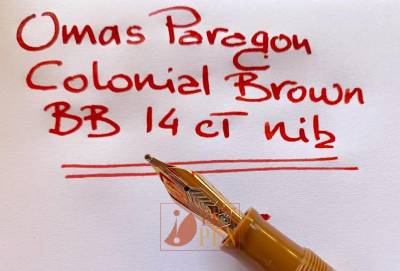 Omas Paragon
Colonial Brown
BB 14 cT nib